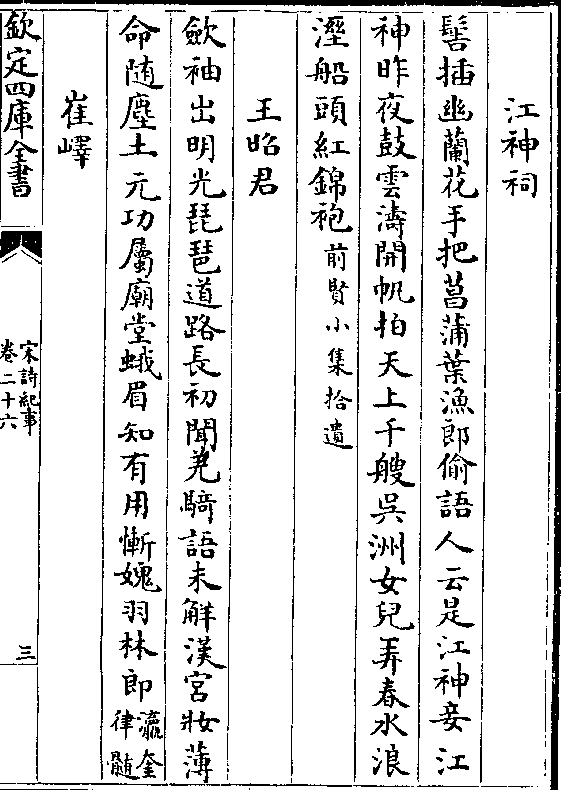 江神祠
髻插幽蘭花手把菖蒲葉漁郎偷語人云是江神妾江
神昨夜鼓雲濤開帆拍天上千艘吳洲女兒弄春水浪
溼船頭紅錦袍前賢小集拾遺
王昭君
歛袖出明光琵琶道路長初聞羌騎語未解漢宮妝薄
命随塵土元功屬廟堂蛾眉知有用慚媿羽林郎瀛奎
律髓
崔嶧
欽定四庫全書
宋詩紀事
卷二十六
三